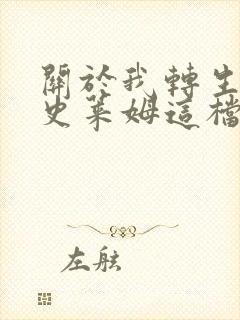 關於我轉生
史萊姆這檔
左舷